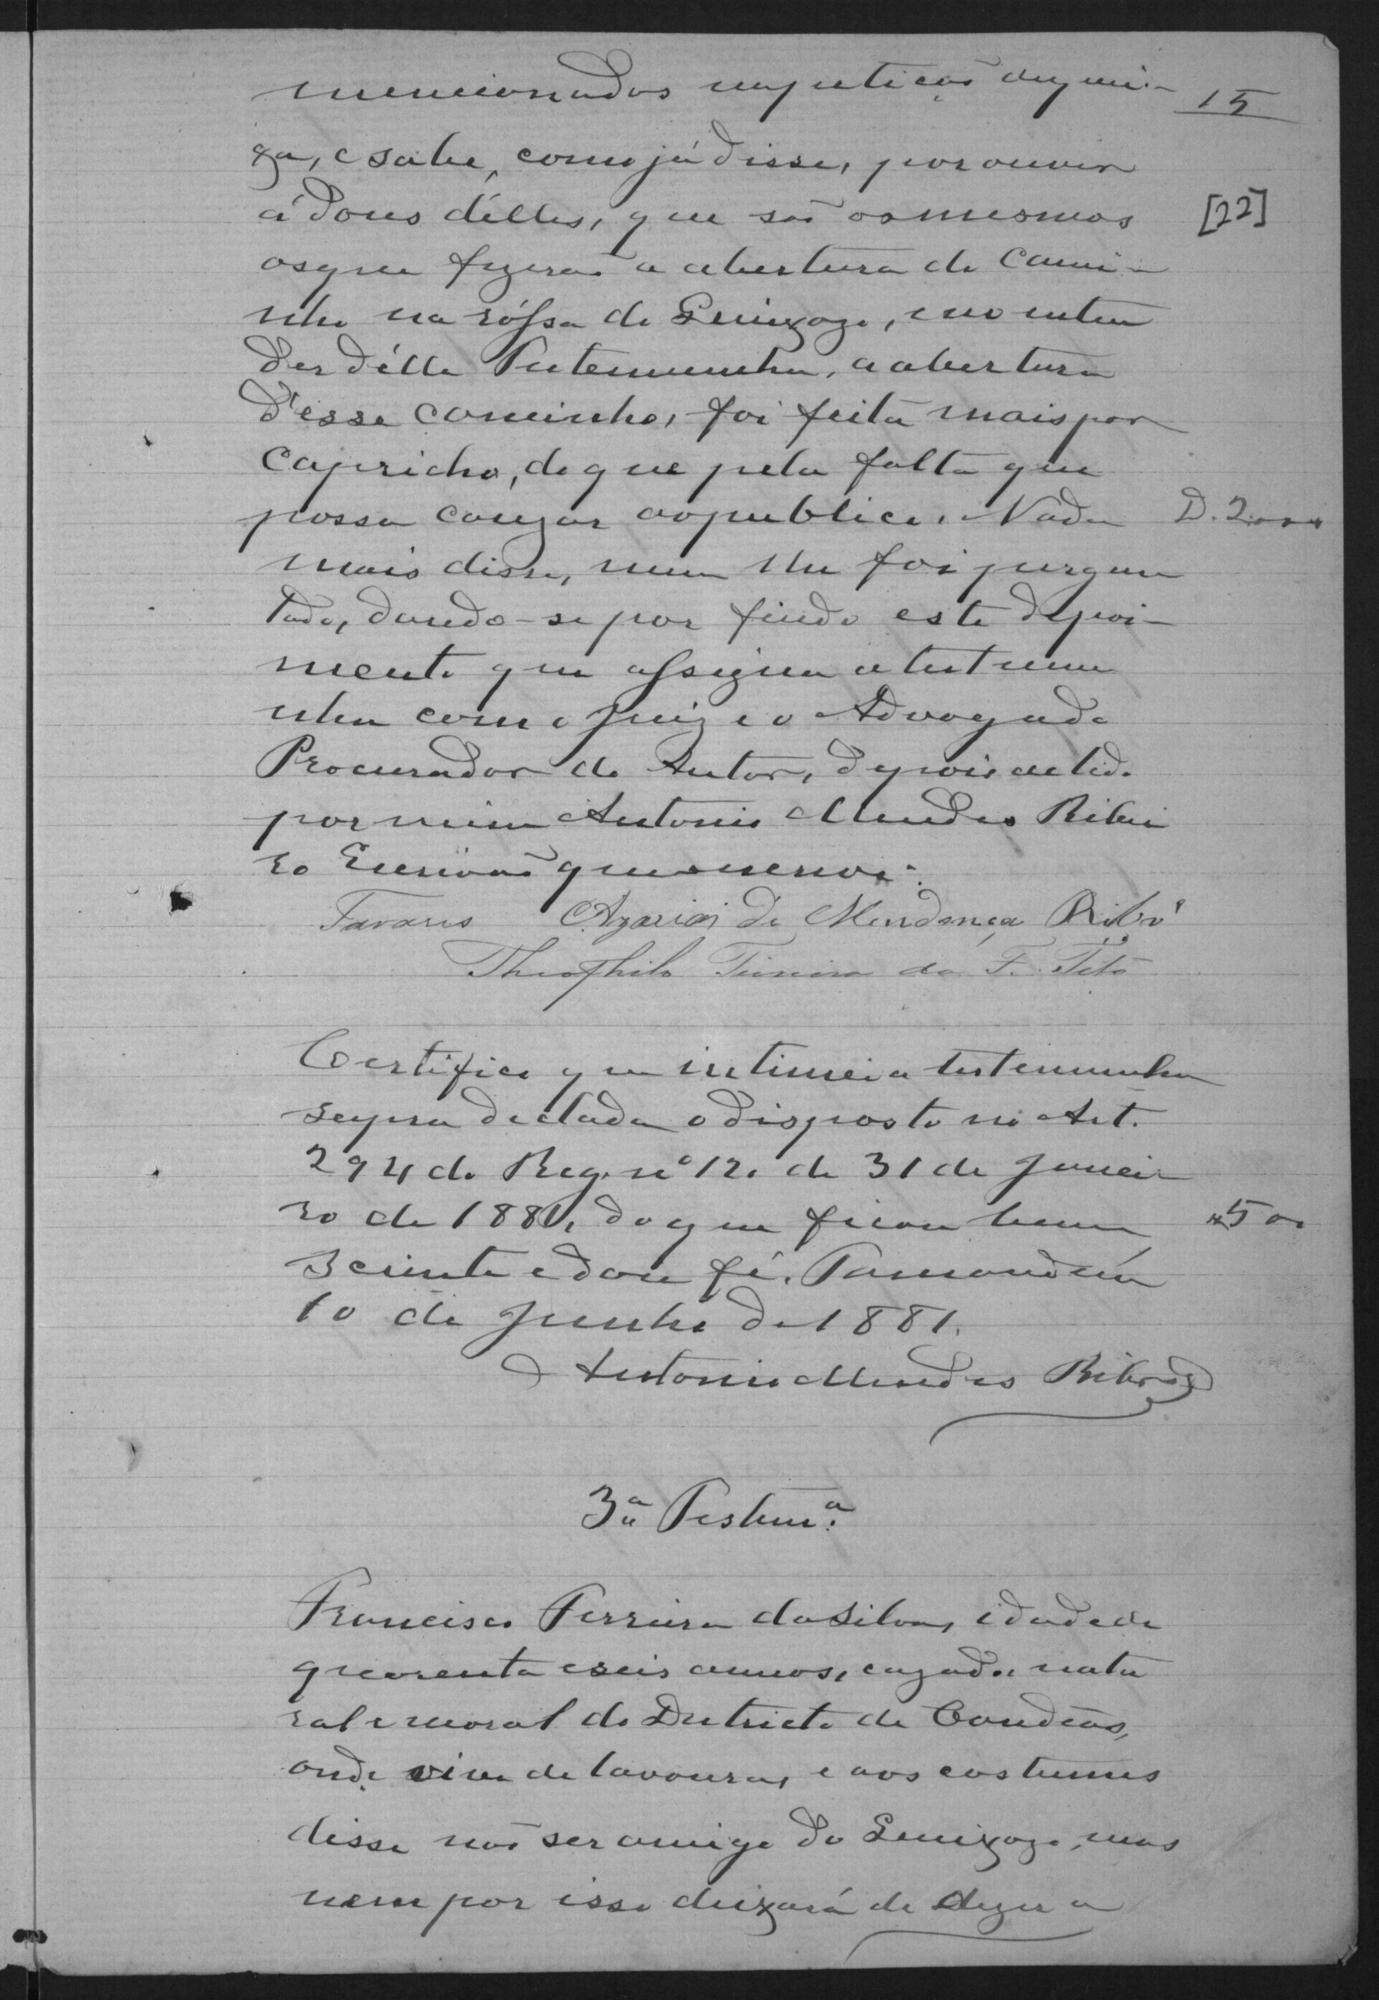 mencionados na petição de quei- 15
xa, e sabe, como já disse, por ouvir
á dous délles, que são os mesmos [22]
os que fizerão a abertura do Cami-
nho na róssa do Luizozo, e no enten
der délla Testemunha, a abertura
d'esse caminho, foi feita mais por
Capricho, do que pela falta que
possa cauzar ao publico. Nada D. 2000
mais disse, nem lhe foi pergun
tado, dando-se por findo este depoi-
mento que assigna a testemu
nha com o Juiz e o Advogado
Procurador do Autor, depois de lido
por mim Antonio Mendes Ribei
ro Escrivão que o escrevi.
Tavares Azarias de Mendonça Ribrº
Theophilo Teixeira da F. Tito
Certifico que intimei a testemunha
supra declada o disposto no Art.
294 do Reg. nº 120 de 31 de Janei
ro de 1881, do que ficou bem $500
sciente e dou fé. Tamandúa
10 de Junho de 1881.
Antonio Mendes Ribrº
3ª Testemª
Francisco Ferreira da Silva, idade de
quarenta e seis annos, cazado, natu
ral e moral do Districto de Candeas,
onde vive de lavoura, e aos costumes
disse não ser amigo do Luizozo, mas
nem por isso deixará de dizer a